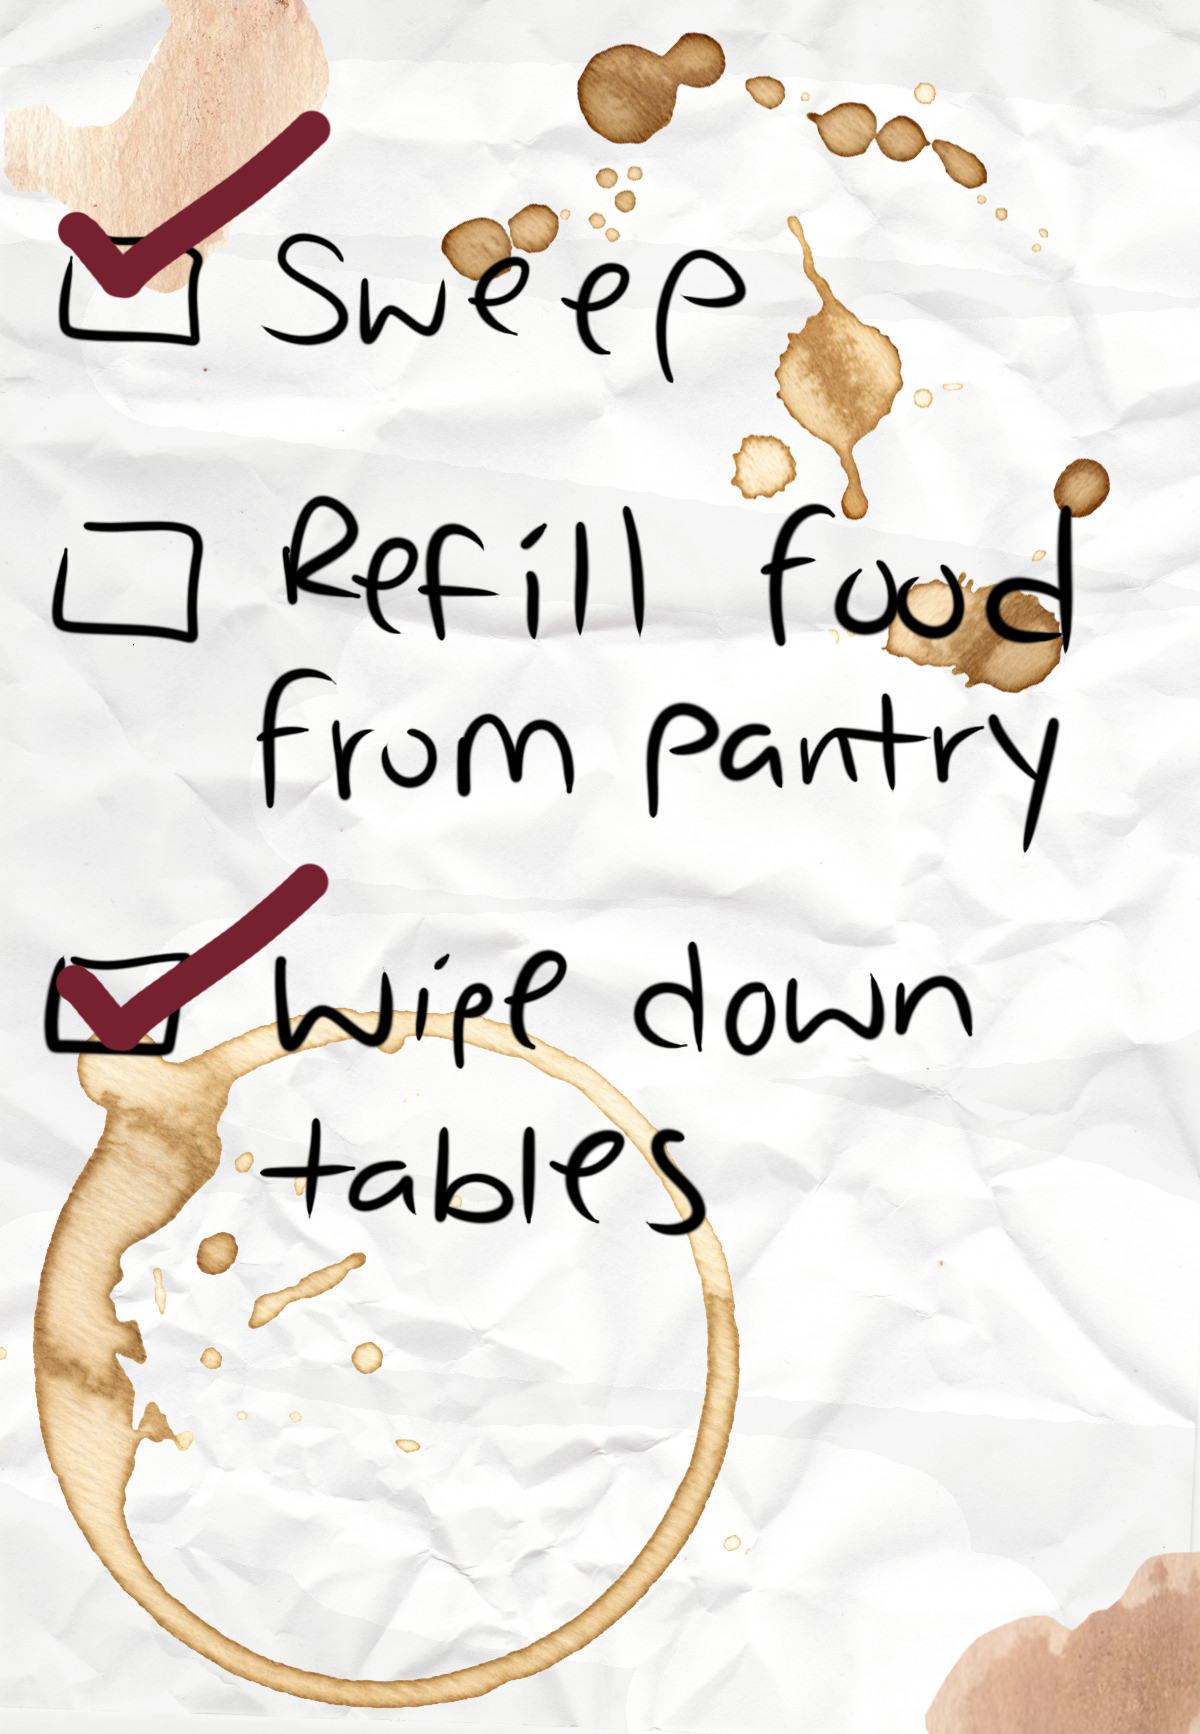 Sweep
Refill food
from pantry
Wipe down
tables